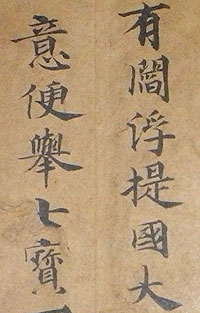 有閻浮提國大
意便舉七寶